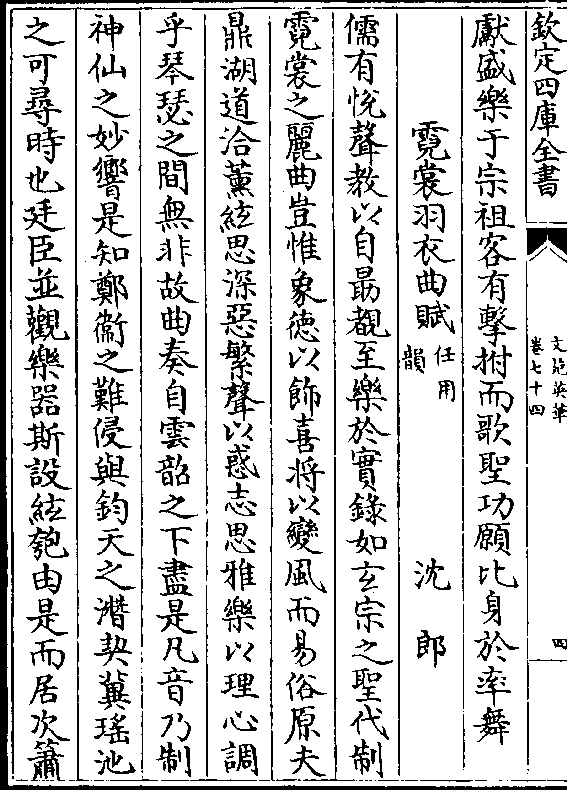 欽定四庫全書
文苑英華
卷七十四
四
獻盛樂于宗祖客有擊拊而歌聖功願比身於率舞
霓裳羽衣曲賦任用韻 沈郎
儒有悅聲教以自勗覩至樂於實錄如玄宗之聖代制
霓裳之麗曲豈惟象徳以飾喜将以變風而易俗原夫
鼎湖道洽薰絃思深惡繁聲以惑志思雅樂以理心調
乎琴瑟之間無非故曲奏自雲韶之下盡是凡音乃制
神仙之妙響是知鄭衞之難侵與鈞天之潛契冀瑤池
之可尋時也廷臣並觀樂器斯設絃匏由是而居次簫